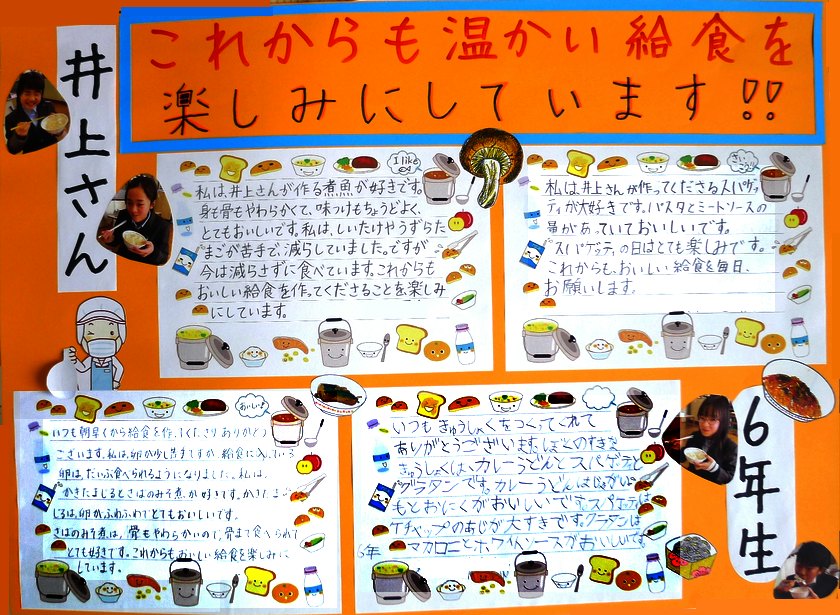 これからも温かい給食を
楽しみにしています!!
井上さん
I like
私は、井上さんが作る煮魚が好きです。
身も骨もやわらかくて、味つけもちょうどよく、
とてもおいしいです。私は、しいたけやうずらた
まごが苦手で、減らしていました。ですが
今は減らさずに食べています。これからも
おいしい給食を作ってくださることを、楽しみ
にしています。
私は、井上さんが作ってくださるスパゲッ
ティが大好きです。パスタとミートソースの
量があっていておいしいです。
スパゲッティの日はとても楽しみです。
これからも、おいしい給食を毎日、
お願いします。
おいしい!
いつも朝早くから給食を作ってくださりありがとう
ございます。私は、卵が少し苦手ですが、給食に入っている
卵は、だいぶ食べられるようになりました。私は、
かきたまじるとさばのみそ煮が好きです。かきたま
じるは、卵がふわふわでとてもおいしいです。
さばのみそ煮は、骨もやわらかいので、骨まで食べられて
とても好きです。これからもおいしい給食を楽しみに
しています。
いつもきゅうしょくをつくってくれて
ありがとうございます。しょくのすきな
きゅうしょくは、カレーうどんとスパゲティと
グラタンです。カレーうどんはじゃがい
もとおにくがおいしいです。スパゲティは
ケチャップのあじが大すきです。グラタンは
マカロニとホワイトソースがおいしいです。
6年
6年生